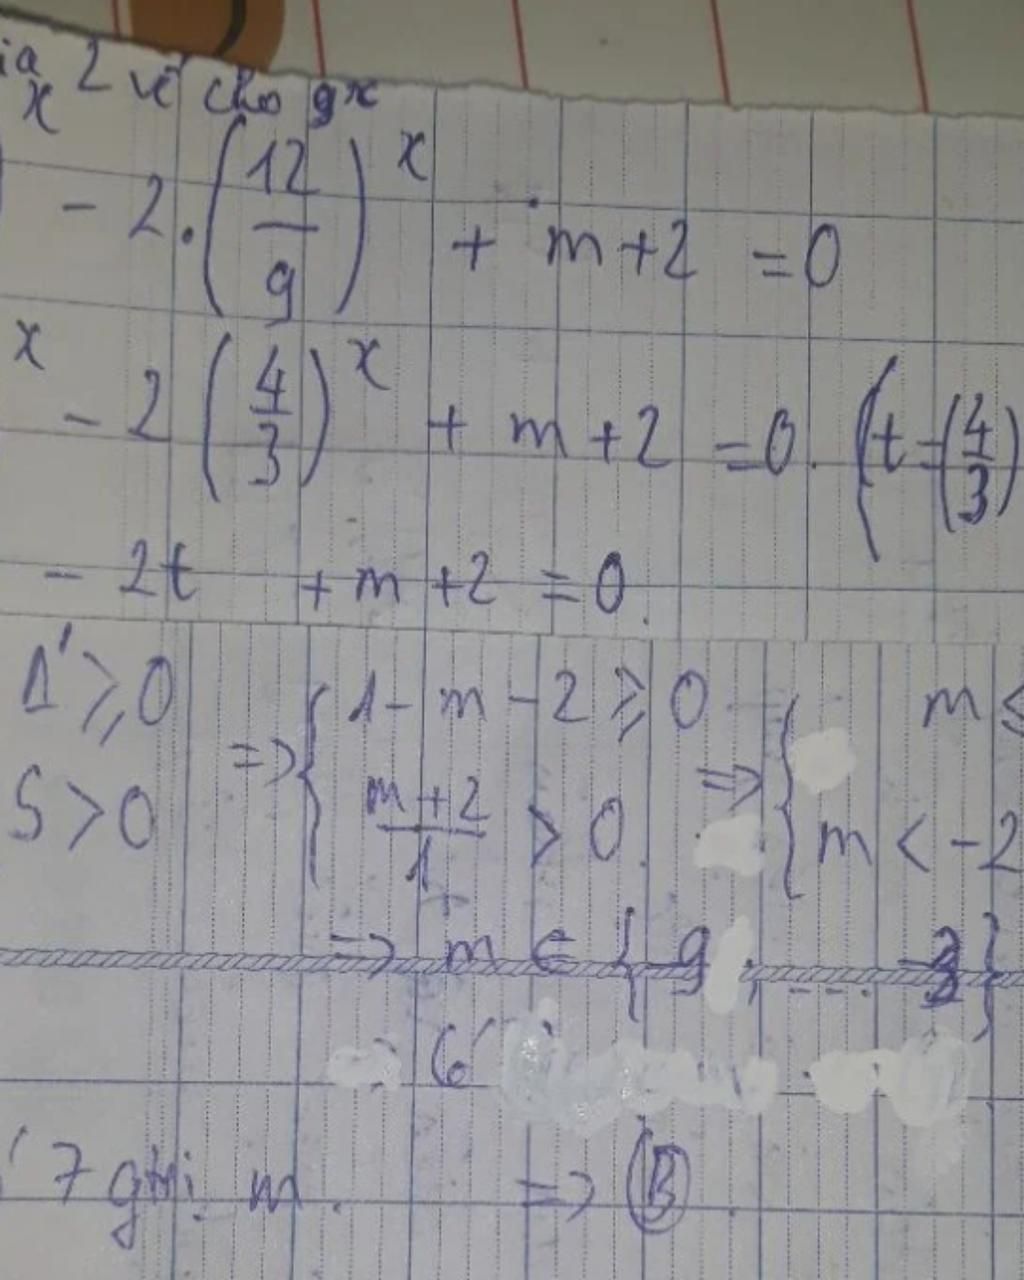 ia 2 vế cho 9x
x
- 2.(12/9)^x + m+2 =0
x - 2 (4/3)^x + m +2 =0. (t=(4/3)
- 2t + m +2 = 0.
Δ' ≥ 0 => { 1 - m - 2 ≥ 0 => { m ≤
S > 0 m+2/1 > 0. m < -2
=> m ∈ { -9 ; ---. -3 }
6
7 gtri m. => B.